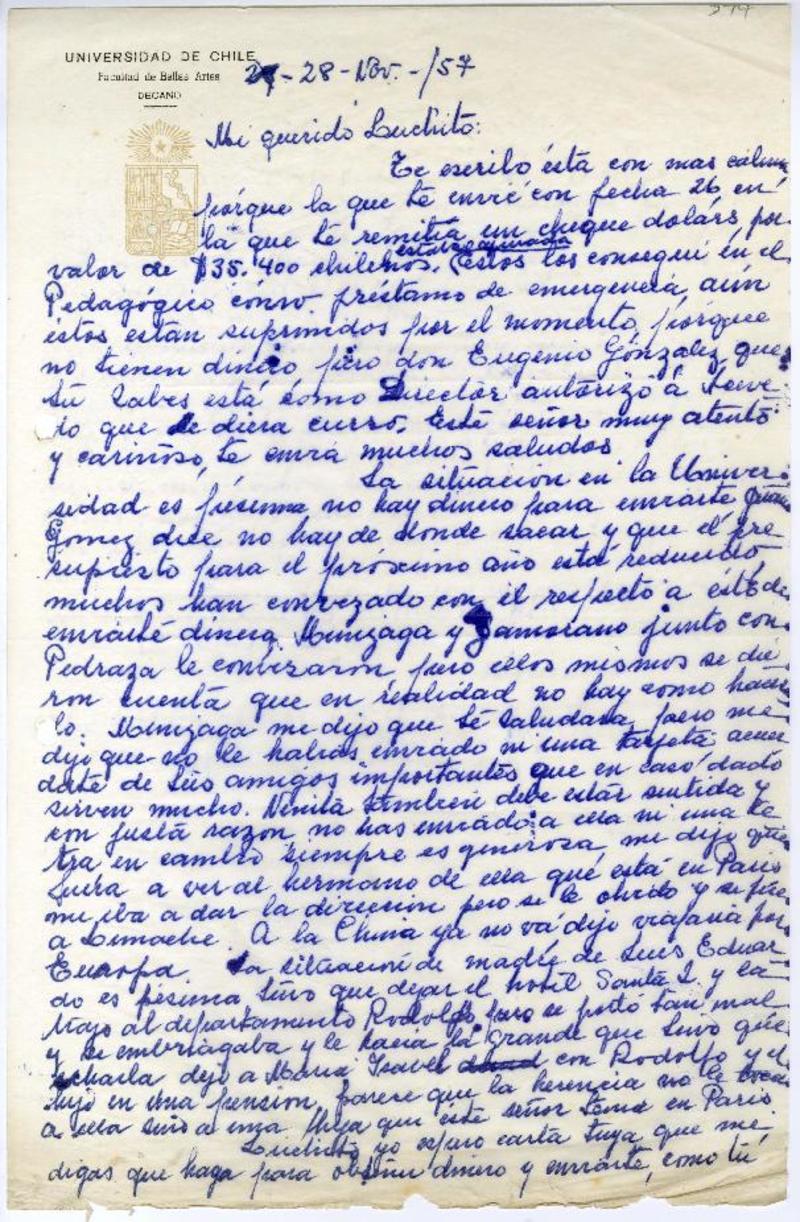 UNIVERSIDAD DE CHILE
Facultad de Bellas Artes
DECANO
28-Nov.-/57
Mi querido Luchito:
Te escribo ésta con mas calma
pórque la que te envié con fecha 26 en
la que te remitia un cheque dolars por
valor de $35.400 chilenos. (estos los conseguí en el
Pedagógico cómo préstamo de emergencia, aún
éstos estan suprimidos por el momento, pórque
no tienen dinero pero don Eugenio Gónzalez que
tu sabes está cómo Director autorizó á
que se diera curso. Esté señor muy atento
y cariñoso, te envia muchos saludos
La situación en la Univer-
sidad es pésima no hay dinero para enviarte
Gomez dice no hay de donde sacar y que el pre-
supuesto para el próximo año está reducido,
muchos han convezado con él respecto a esto de
enviarte dinero. Munizaga y Zamorano junto con
Pedraza le conversaron, pero ellos mismos se die-
ron cuenta que en realidad no hay como hacer-
lo. Munizaga me dijo que te saludara, pero me
dijo que no le habias enviado ni una tarjeta acuer-
date de tus amigos importantes que en caso dado
sirven mucho. Nenita tambien debe estar sentida y
con justa razon no has enviado a ella ni una le-
tra en cambio siempre es generosa, me dijo que
fuera a ver al hermano de ella que está en Paris
me iba a dar la direccion pero se le olvido y se fue
a Limache. A la China ya no vá dijo viajaria por
Europa. La situación de madre de Luis Eduar-
do es pésima tuvo que dejar el hotel Santa L y
trajo al departamento Rodolfo pero se portó tan mal
y se embriagaba y le hacia la grande que tuvo que
echarla dejo a Maria Isabel con Rodolfo y el
hijo en una pension, parece que la herencia no le toca
a ella sino a una hija que este señor tenia en Paris
Luchito yo espero carta tuya que me
digas que haga para obtener dinero y enviarte, como tú